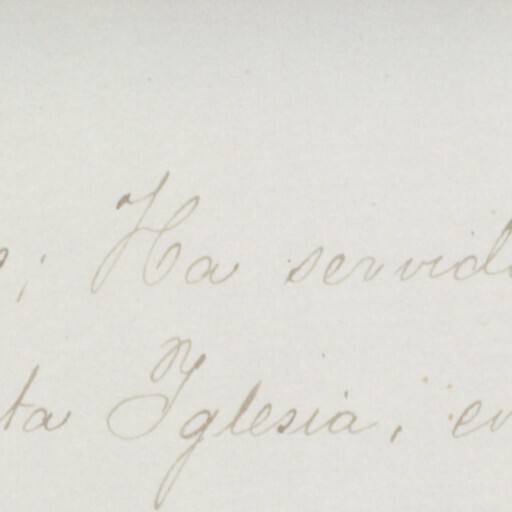 ; Ha servid
ta Iglesia, en